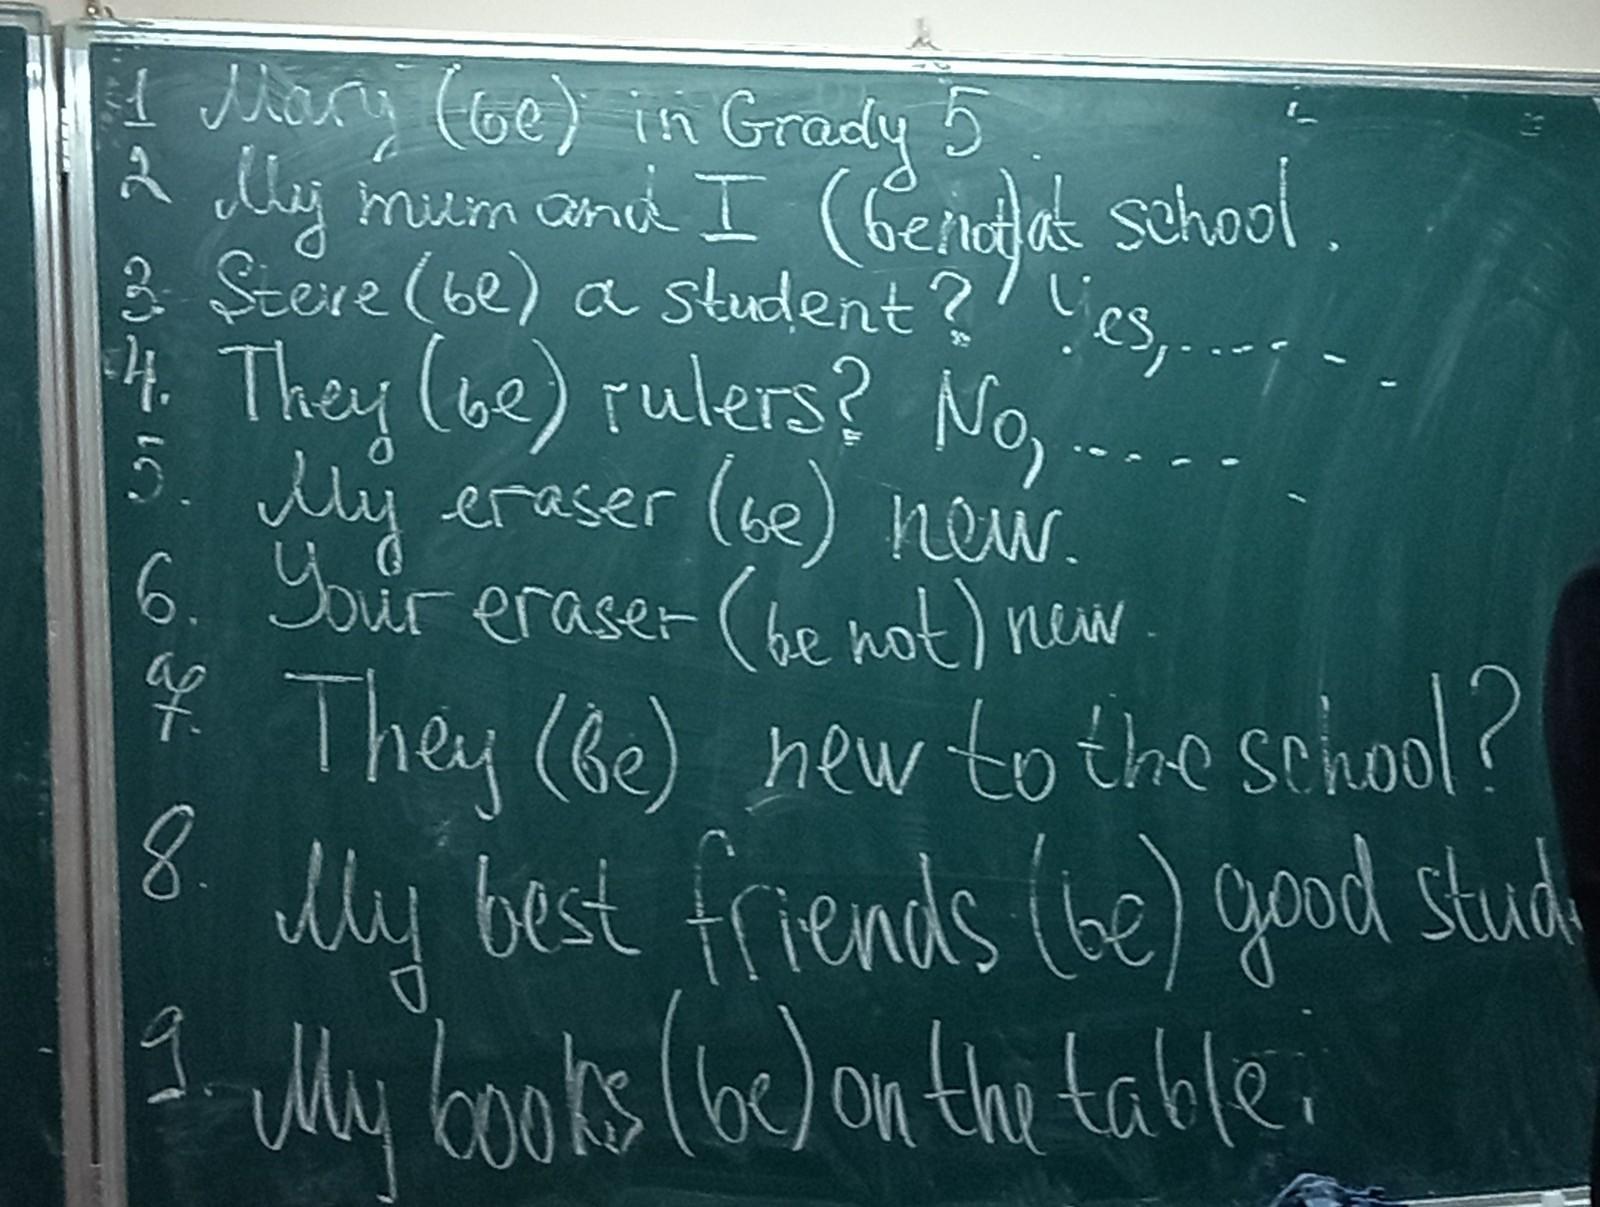 1 Mary (be) in Grady 5
2 My mum and I (be not) at school.
3. Steve (be) a student? Yes, .......
4. They (be) rulers? No, .......
5. My eraser (be) new.
6. Your eraser (be not) new.
7. They (be) new to the school?
8. My best friends (be) good stud
9. My books (be) on the table.